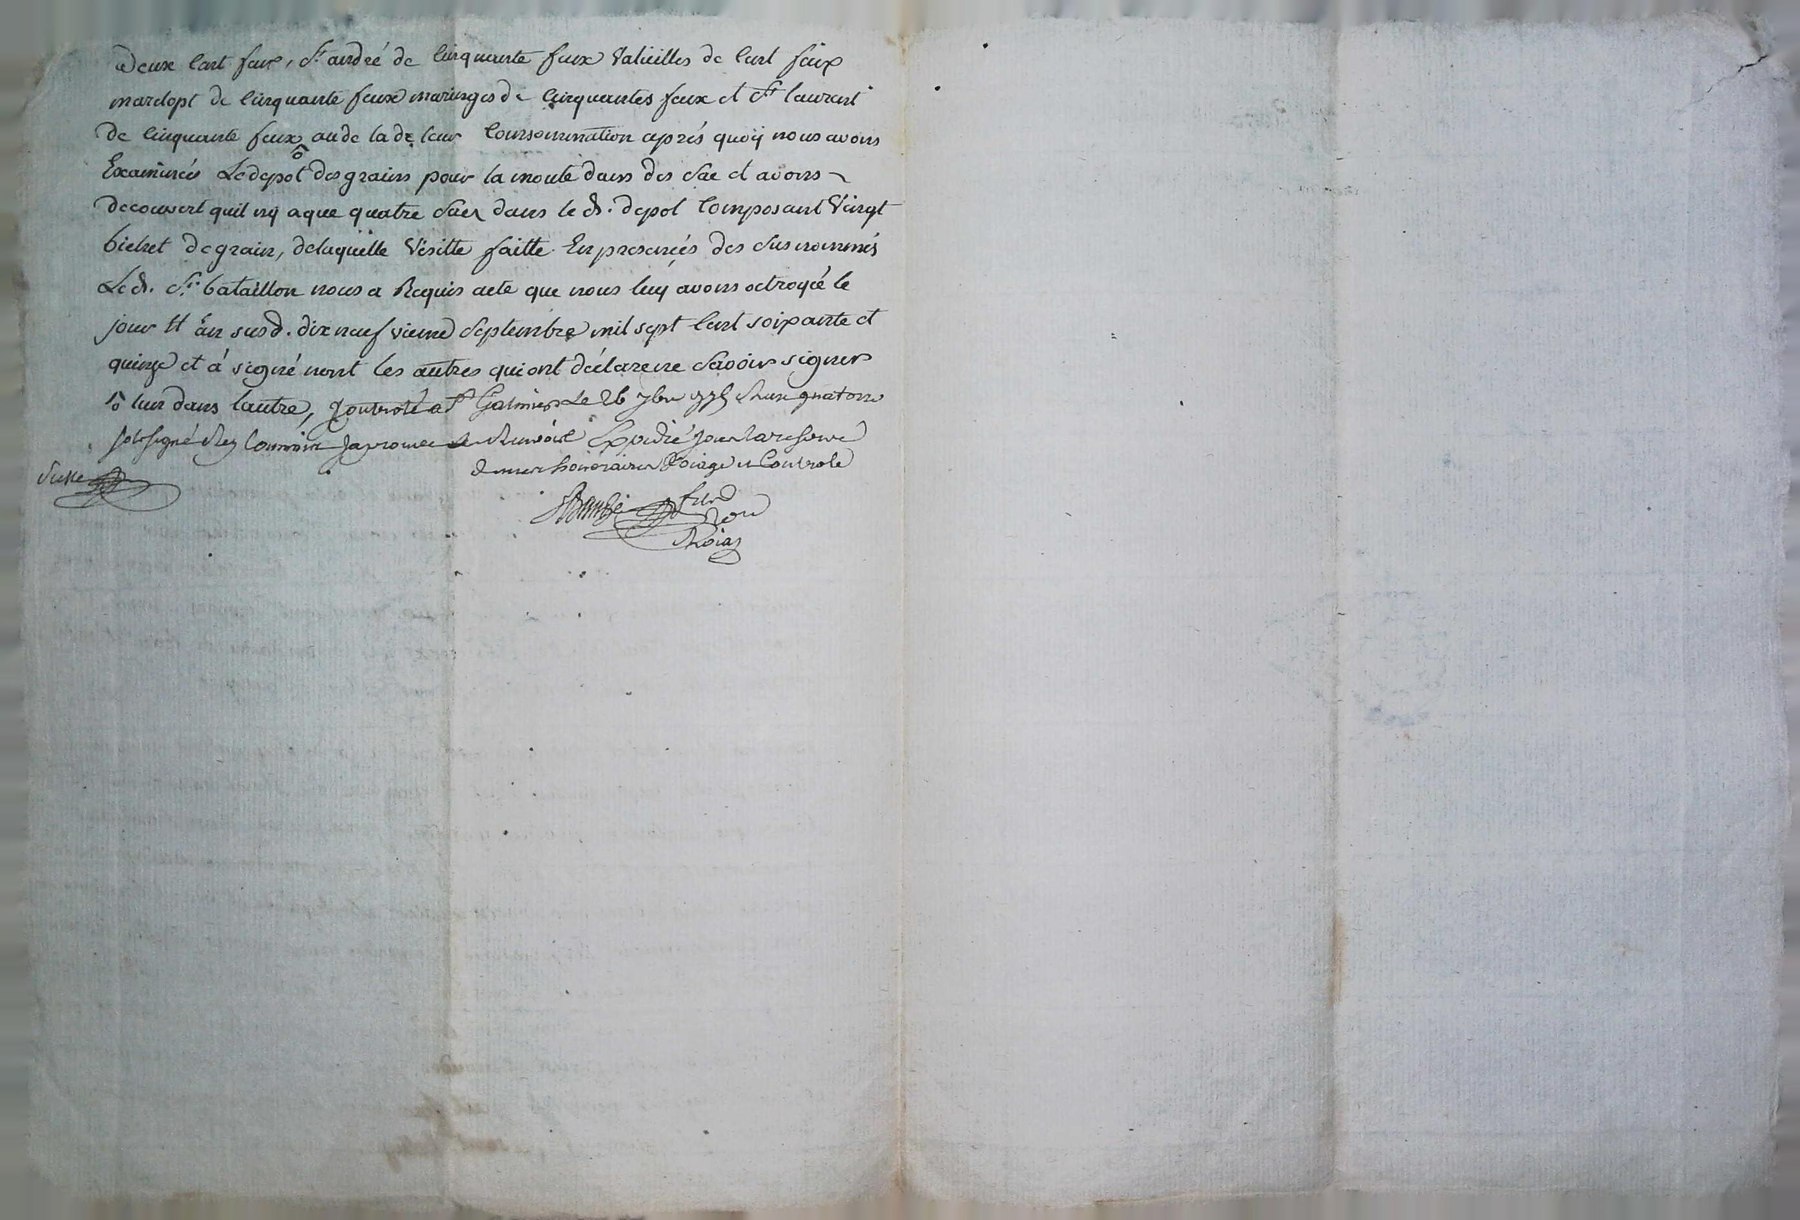 deux cent feux, St andré de cinquante feux valeilles de cent feux
mardopt de cinquante feux maringes de cinquantes feux et St laurent
de cinquante feux au de la de leur consommation aprés quoÿ nous avons
Examinés Le depot des grains pour la monte dans des sac et avons
decouvert quil nÿ a que quatre sacs dans le d. depot composant vingt
bichet de grain, delaquelle visitte faitte En presences des susnommés
Le d. Sr. bataillon nous a Requis acte que nous luy avons octroyé le
jour et an susd. dix neuf vieme septembre mil sept cent soixante et
quinze et a signé nont les autres qui ont déclare ne savoir signer
lun dans lautre, Controlé a St Galmier Le 26 7bre 1775 Reçu quatorze
sols signé Rey commis
honoraires voiage et Controle